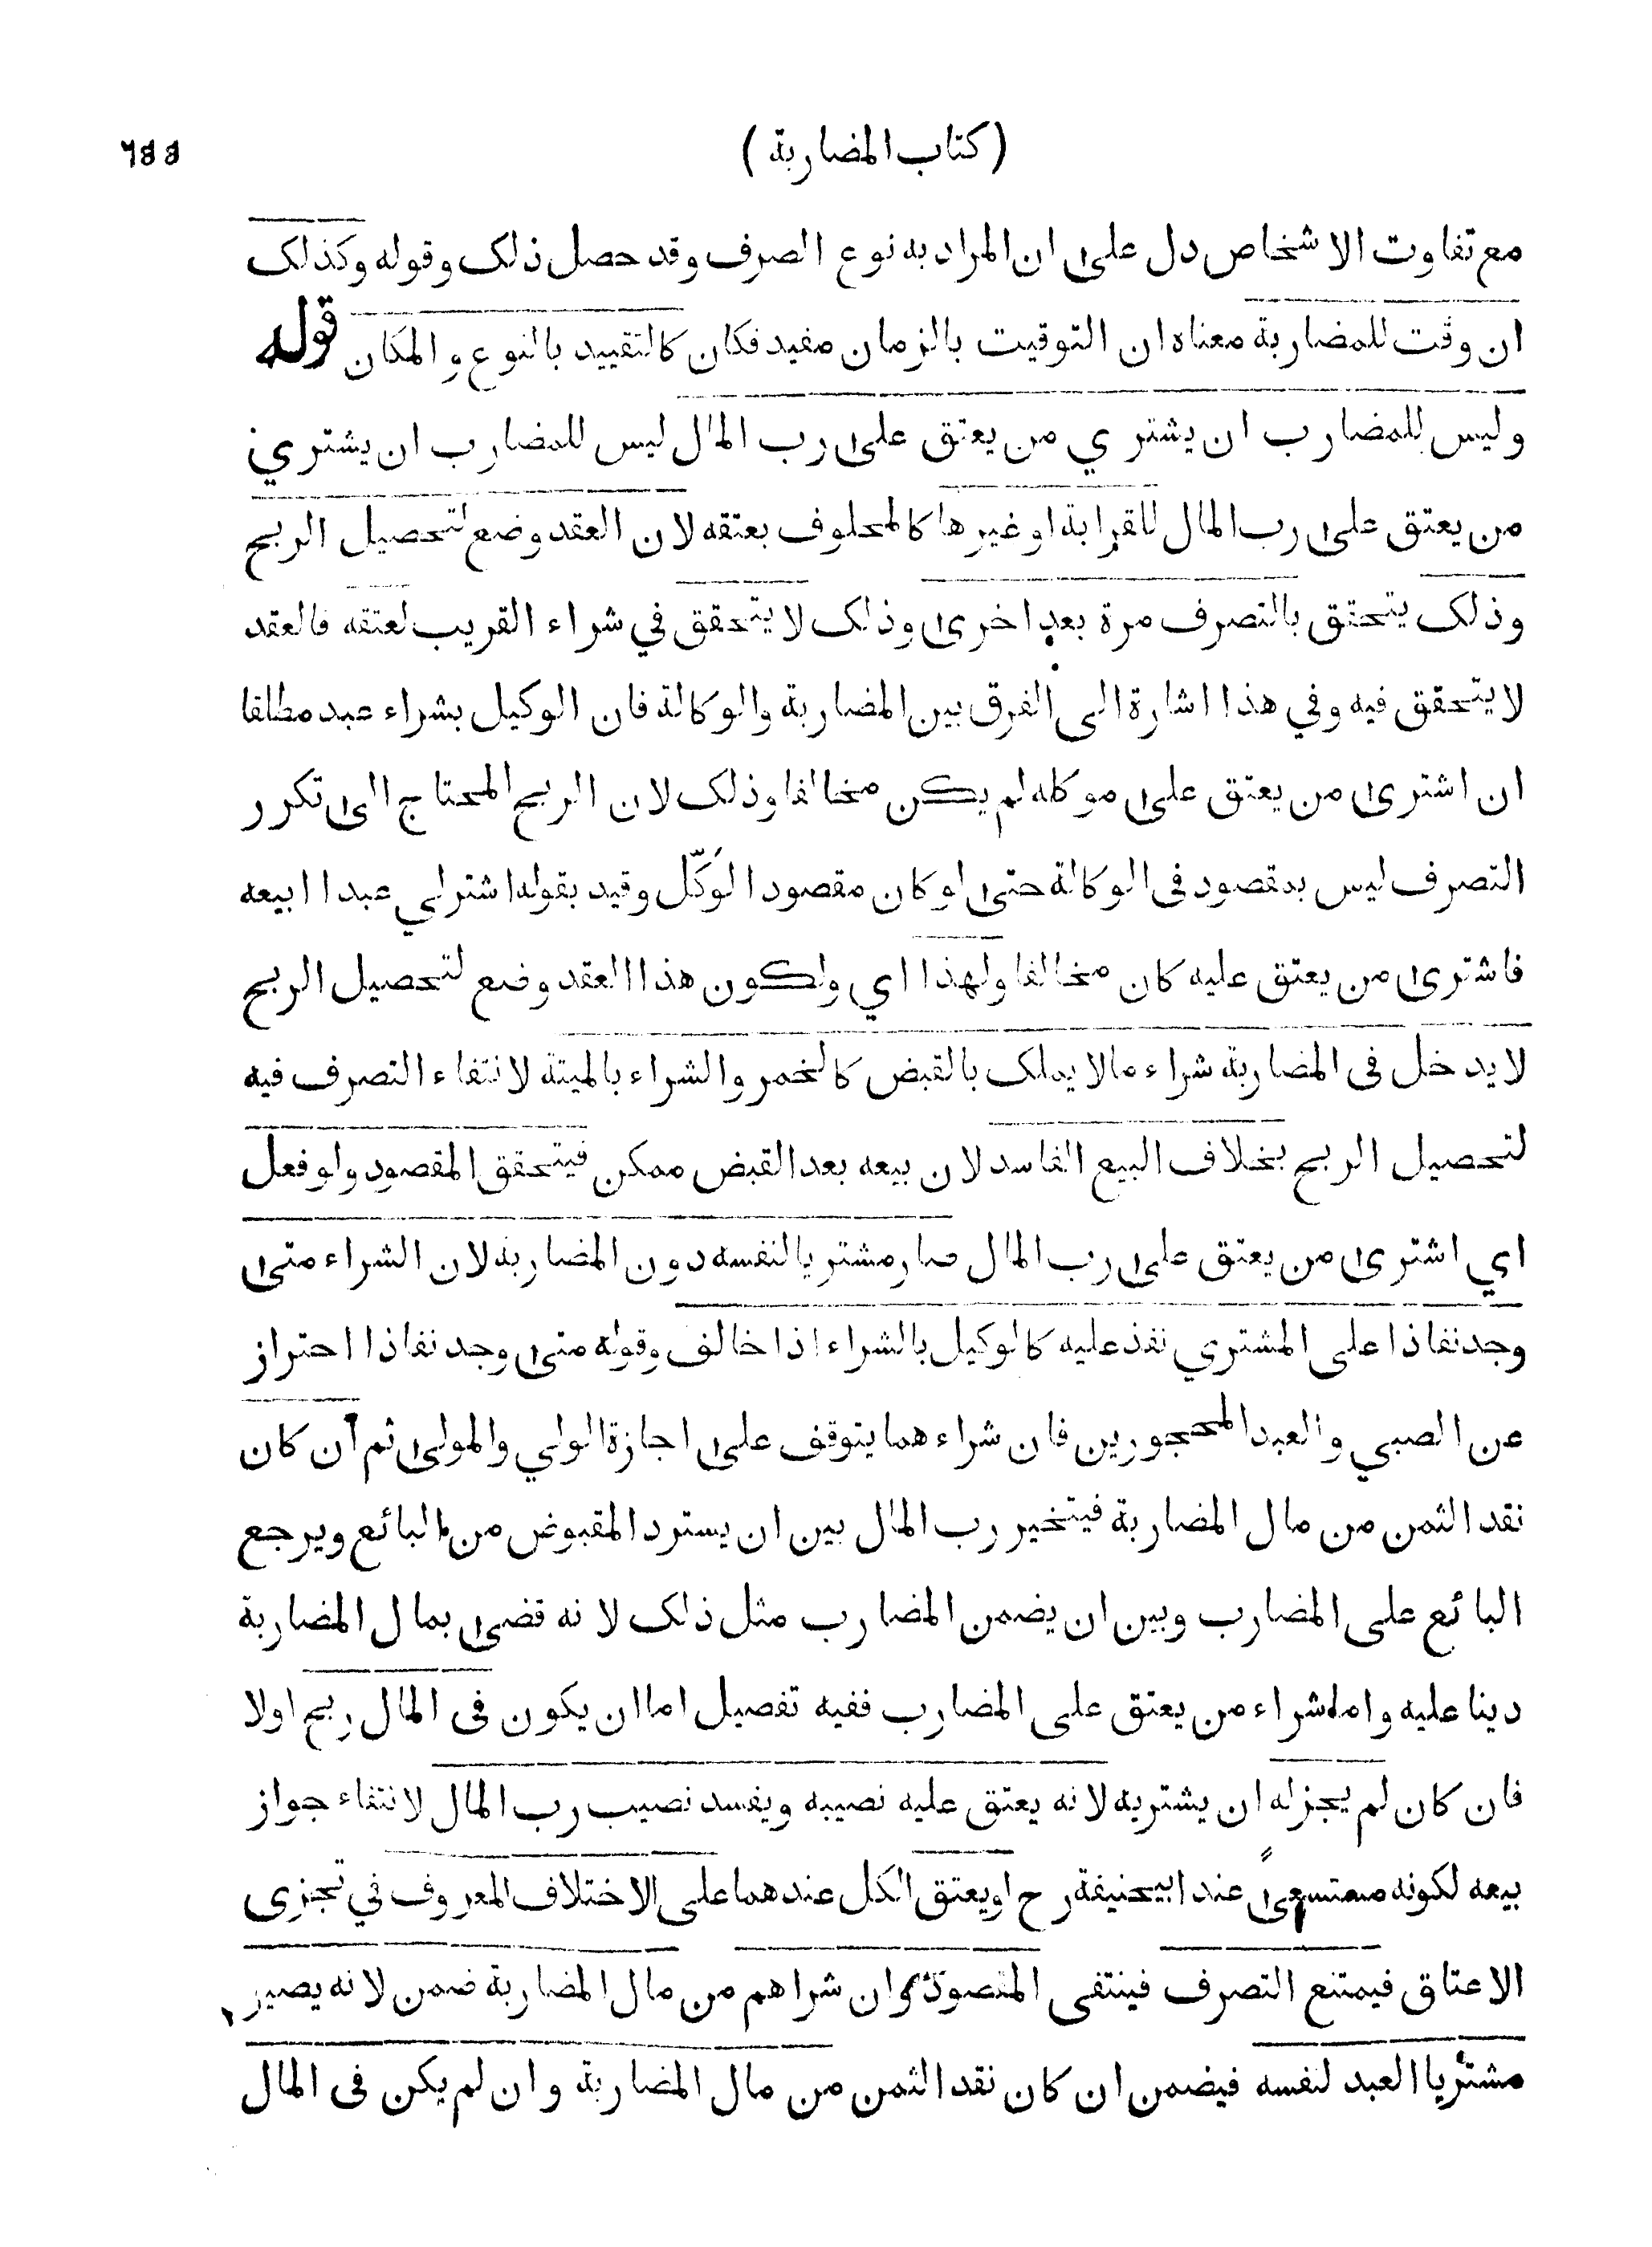 (كتاب المضاربة)
مع تفاوت الاشخاص دل على ان المراد به نوع الصرف وقد حصل ذلك وقوله وكذلك
ان وقت للمضاربة معناه ان التوقيت بالزمان مفيد فكان كالتقييد بالنوع والمكان قوله
وليس للمضارب ان يشتري من يعتق على رب المال ليس للمضارب ان يشتري
من يعتق على رب المال للقرابة او غيرها كالمحلوف بعتقه لان العقد وضع لتحصيل الربح
وذلك يتحقق بالتصرف مرة بعد اخرى وذلك لا يتحقق في شراء القريب لعتقه فالعقد
لا يتحقق فيه وفي هذا اشارة الى الفرق بين المضاربة والوكالة فان الوكيل بشراء عبد مطلقا
ان اشترى من يعتق على موكله لم يكن مخالفا وذلك لان الربح المحتاج الى تكرر
التصرف ليس بمقصود في الوكالة حتى لو كان مقصود الموَكّل وقيد بقوله اشتر لي عبدا ابيعه
فاشترى من يعتق عليه كان مخالفا ولهذا اي ولكون هذا العقد وضع لتحصيل الربح
لا يدخل في المضاربة شراء ما لا يملك بالقبض كالخمر والشراء بالميتة لانتفاء التصرف فيه
لتحصيل الربح بخلاف البيع الفاسد لان بيعه بعد القبض ممكن فيتحقق المقصود ولو فعل
اي اشترى من يعتق على رب المال صار مشتريا لنفسه دون المضاربة لان الشراء متى
وجد نفاذا على المشتري نفذ عليه كالوكيل بالشراء اذا خالف وقوله متى وجد نفاذا احتراز
عن الصبي والعبد المحجورين فان شراءهما يتوقف على اجازة الولي والمولى ثم ان كان
نقد الثمن من مال المضاربة فيتخير رب المال بين ان يسترد المقبوض من البائع ويرجع
البائع على المضارب وبين ان يضمن المضارب مثل ذلك لانه قضى بمال المضاربة
دينا عليه واما شراء من يعتق على المضارب ففيه تفصيل اما ان يكون في المال ربح اولا
فان كان لم يجز له ان يشتريه لانه يعتق عليه نصيبه ويفسد نصيب رب المال لانتفاء جواز
بيعه لكونه مستسعىً عند ابيحنيفة رح او يعتق الكل عندهما على الاختلاف المعروف في تجزى
الاعتاق فيمتنع التصرف فينتفى المقصود وان شراهم من مال المضاربة ضمن لانه يصير
مشتريا العبد لنفسه فيضمن ان كان نقد الثمن من مال المضاربة وان لم يكن في المال